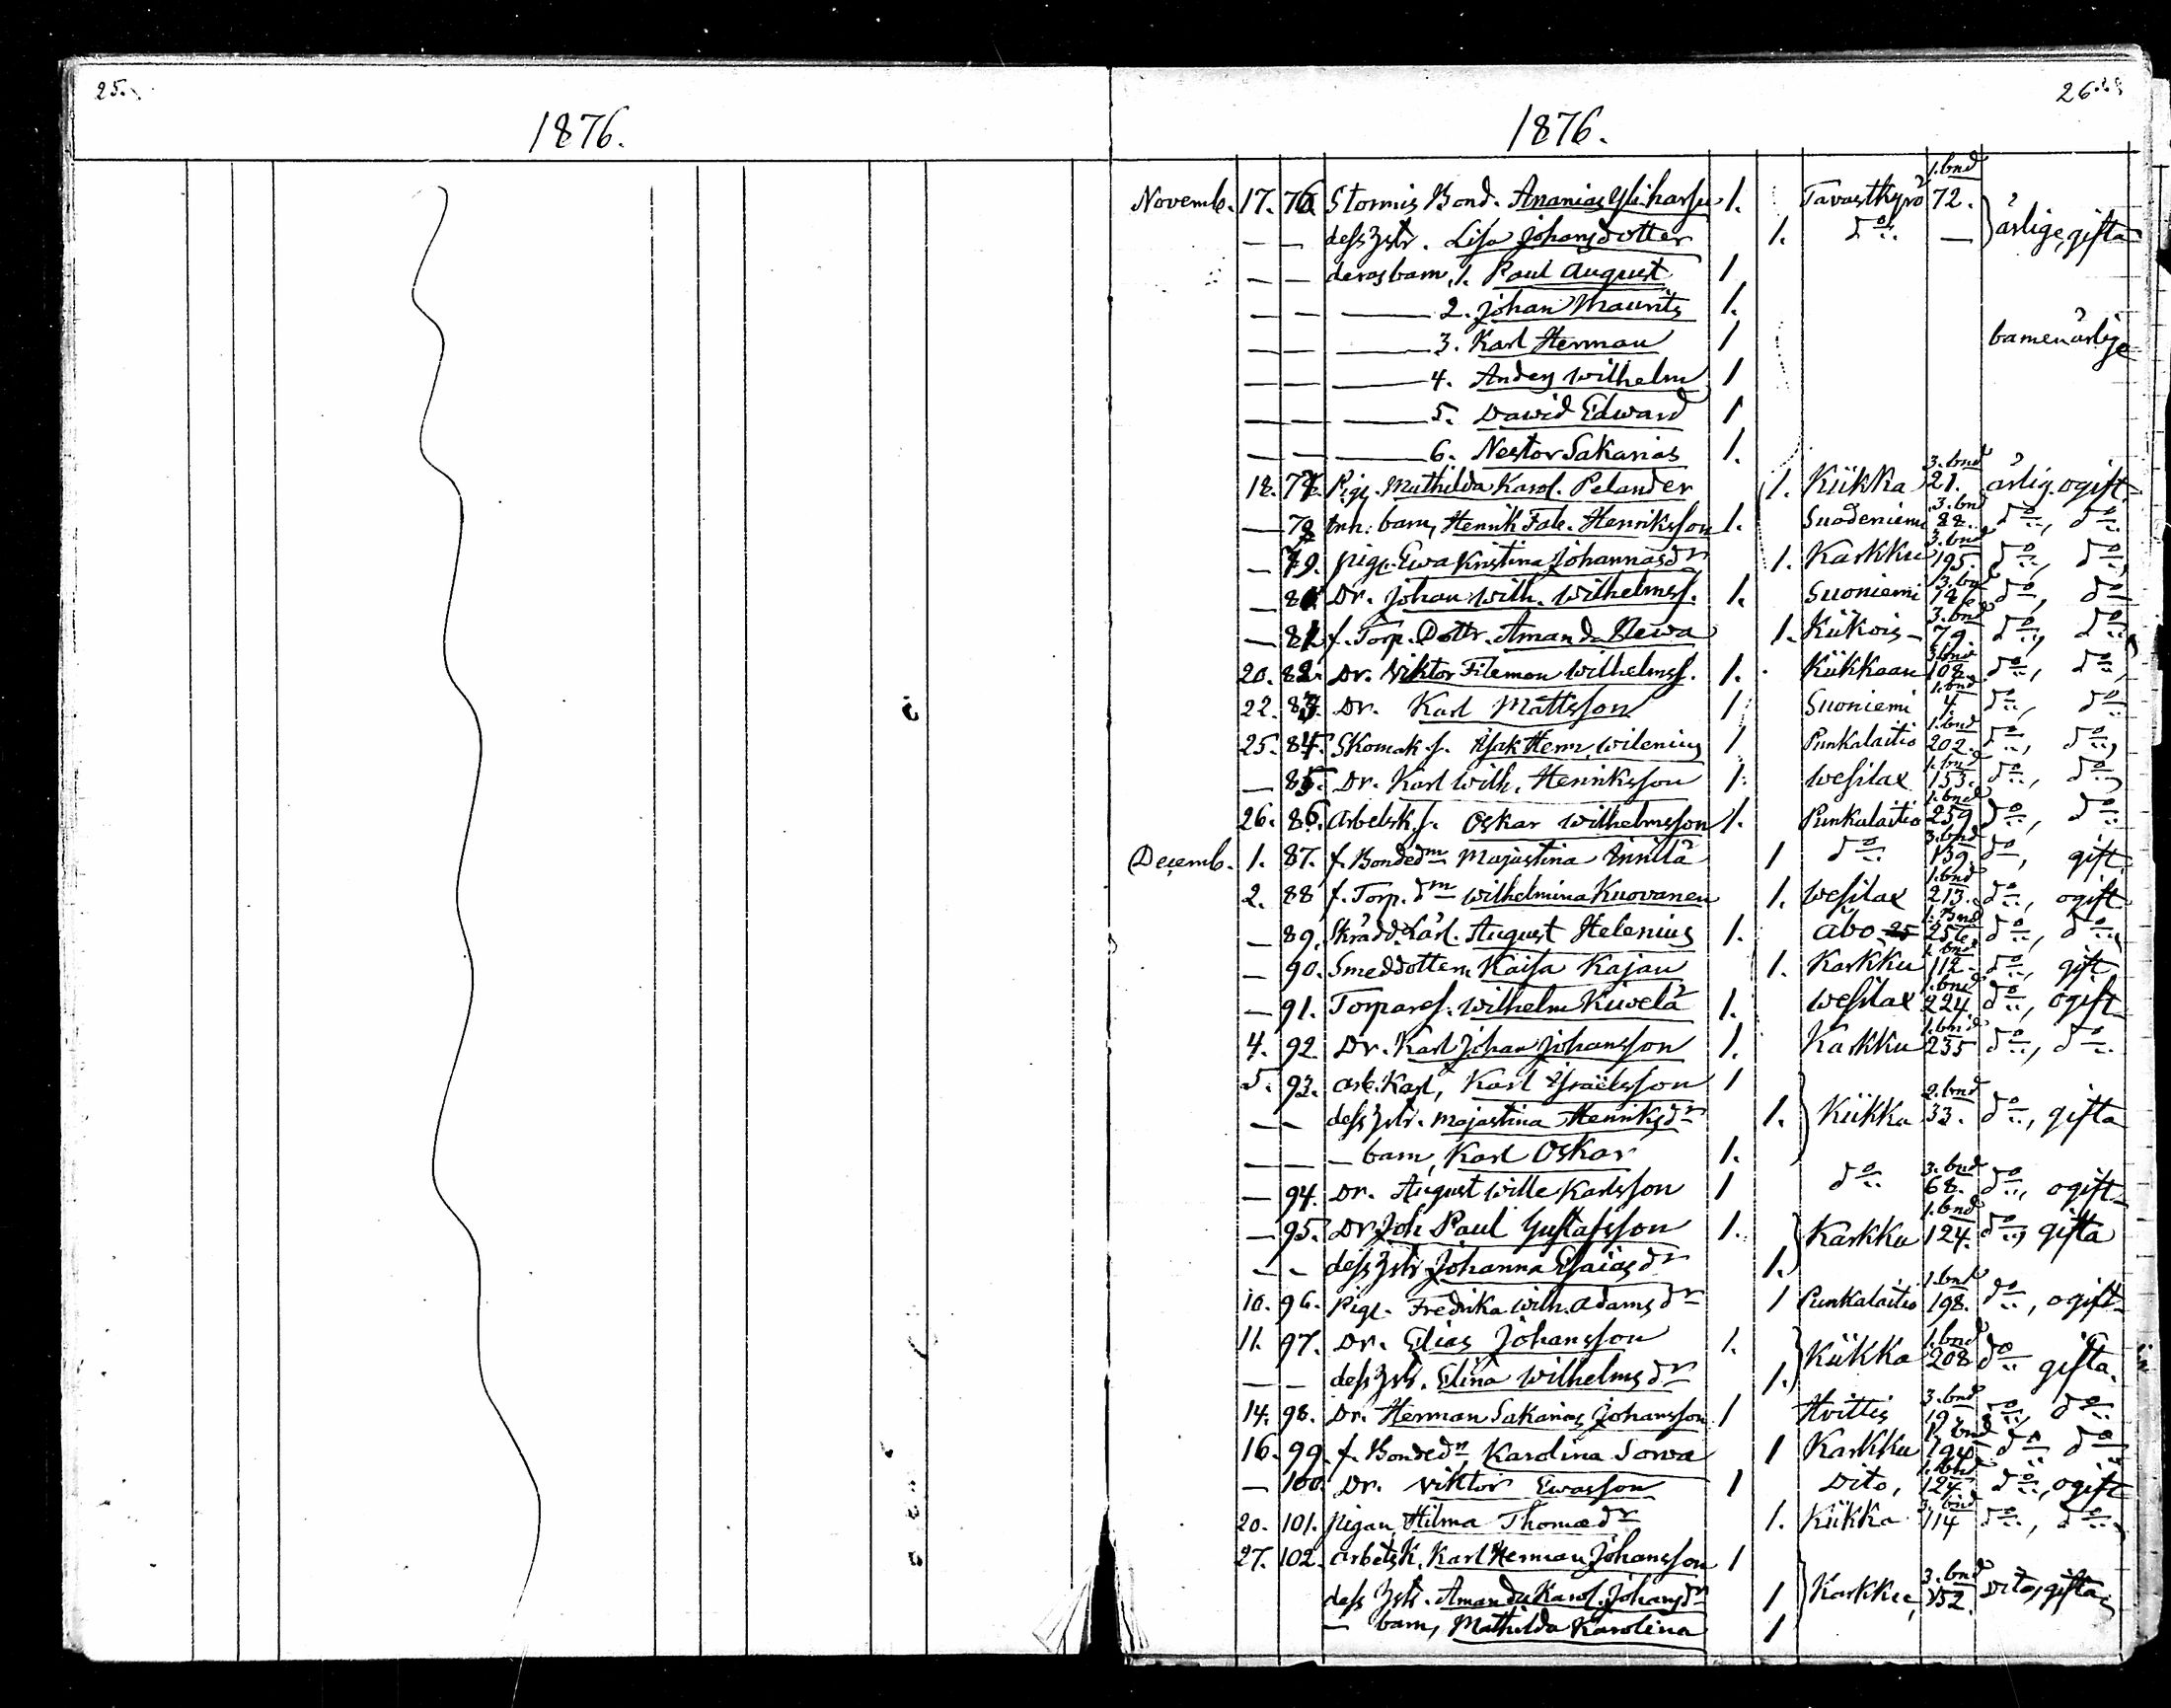 25.
1876.
26.
1876.
Novemb. 17. 76. Stormis Bond. Ananias Yliharsu 1. Tavastkyrö 1. bnd 72. ärlige, gifta
— — dess hstr. Lisa Johansdotter 1. do —
— — deras barn, 1. Paul August 1
— — — 2. Johan Maurits 1.
— — — 3. Karl Herman 1 barnen ärlige
— — — 4. Anders Wilhelm 1
— — — 5. Dawid Edward 1
— — — 6. Nestor Sakarias 1.
18. 77. Pig. Mathilda Karol. Pelander 1. Kiikka 3. bnd 21. ärlig. ogift
— 78 inh. barn, Henrik Fab. Henriksson 1. Suodeniemi 3. bnd 88. do, do
— 79. pig. Ewa Kristina Johannasdr 1. Karkku 3. bnd 195. do, do
— 80 Dr. Johan Wilh. Wilhelmss. 1. Suoniemi 3. bnd do, do
— 81 f. Torp. Dottr. Amanda Newa 1. Kiikois 3. bnd 79. do, do
20. 82. Dr. Viktor Filemon Wilhelmss. 1. Kiikkaan 3. bnd 108. do, do
22. 83. Dr. Karl Mattsson 1 Suoniemi 1. bnd 4. do, do
25. 84. Skomak. s. Isak Herm. Wilenius 1 Punkalaitio 1. bnd 202. do, do
— 85. Dr. Karl Wilh. Henriksson 1. Wesilax 1. bnd 153. do, do
26. 86. Arbetsk. s. Oskar Wilhelmsson 1. Punkalaitio 1. bnd 259. do, do
Decemb. 1. 87. f. Bondedm Majastina Annilä 1 do 3. bnd 139. do, gift
2. 88 f. Torp. dm Wilhelmina Kuovanen 1. Wesilax 1. bnd 213. do, ogift
— 89. Skrädd. Lärl. August Helenius 1. Åbo 1. bnd 256. do, do
— 90. Smeddottern Kaisa Kajan 1. Karkku 1. bnd 112. do, gift
— 91. Torpares. Wilhelm Kiwelä 1. Wesilax 1. bnd 224. do, ogift
4. 92. Dr. Karl Johan Johansson 1. Karkku 1. bnd 235 do, do
5. 93. arb. Karl, Karl Israelsson 1
— — dess hstr. Majastina Henriksdr 1. Kiikka 2. bnd 33. do, gifta
— — — barn, Karl Oskar 1.
— 94. Dr. August Wille Karlsson 1 do 3. bnd 68. do, ogift
— 95. Dr Joh Paul Gustafsson 1. Karkku 1. bnd 124. do, gifta
— — dess hstr Johanna Esaiasdr 1.
10. 96. Pig. Fredrika Wilh. Adamsdr 1 Punkalaitio 1. bnd 198. do, ogift
11. 97. Dr. Elias Johansson 1. Kiikka 1. bnd 208 do gifta.
— — dess hstr. Elina Wilhelmsdr 1.
14. 98. Dr. Herman Sakarias Johansson 1 Hvittis 3. bnd do, do
16. 99. f. Bondedr, Karolina Sorva 1 Karkku 1. bnd do do
— 100. Dr. Viktor Ewasson 1 Dito, 1. bnd 124. do, ogift
20. 101. pigan Hilma Thomædr 1. Kiikka 3. bnd 114 do, do
27. 102. Arbetsk. Karl Herman Johansson 1
dess hstr. Amanda Karol. Johansdr 1 Karkku, 3. bnd 152. Dito, gifta
— barn, Mathilda Karolina 1